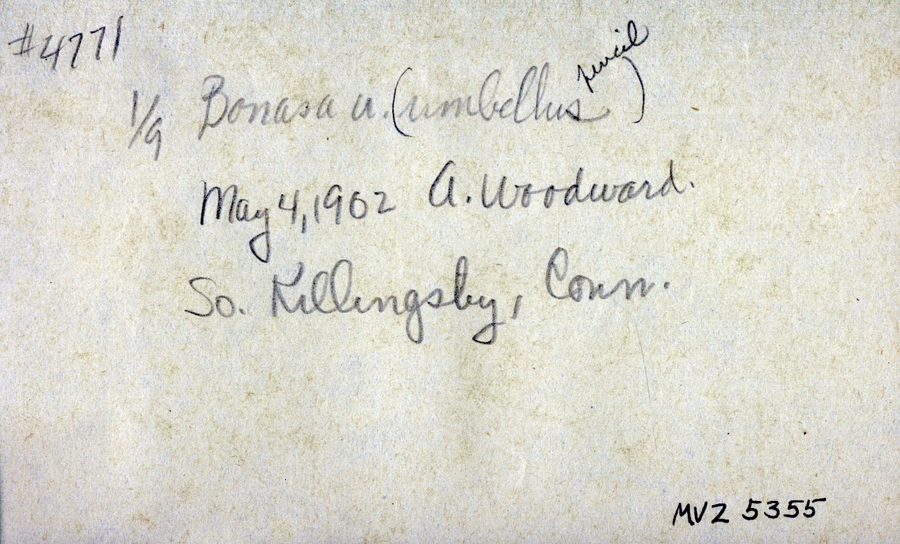 #4771
pencil
1/9 Bonasa u. (umbellus)
May 4, 1902 A. Woodward.
So. Killingsby, Conn.
MVZ 5355